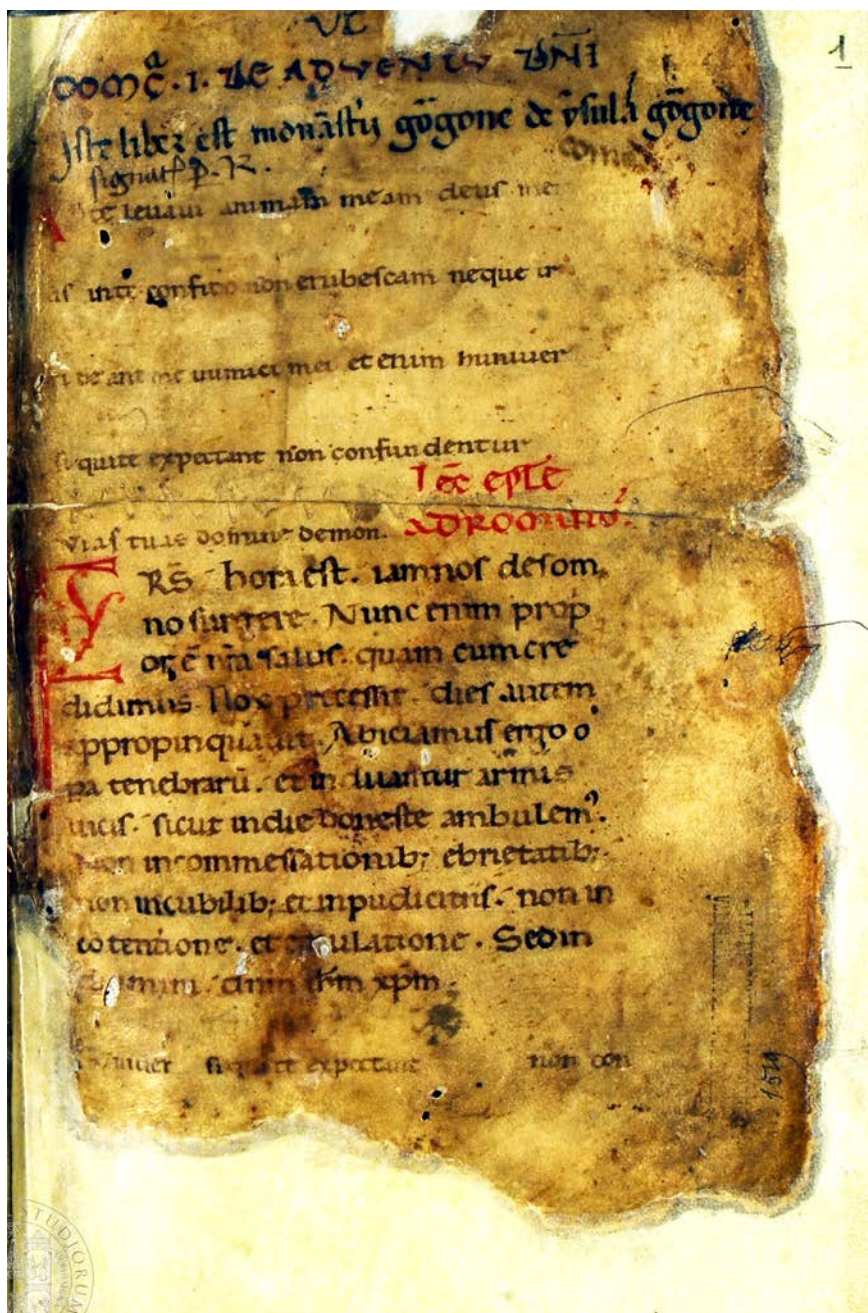 1
DOMC̄A · I · DE ADVENTU DN̄I
Iste liber est monāstii gōgone de ysula gōgone
signatꝰ P. R.
te levavi animam meam deus me
us inte confido non erubescam neque ir
ri deant me inimici mei et enim huniver
si qui te expectant non confundentur
lec̄ ep̄le
vias tuas domine demon. ADROMANOꝰ.
FRS̄ hora est. iam nos desom
no surgere. Nunc enim prop
or ē n̄ra salus. quam cum cre
didimus. Nox precessit. dies autem
appropinquavit. Abiciamus ergo o
pa tenebrarū. et induamur armis
lucis. sicut indie honeste ambulemꝰ.
Non incommessationib; ebrietatib;
non incubilib; et inpudicitiis. non in
cōtentione. et emulatione. Sed in
duimini dn̄m ih̄m xp̄m.
univer si qui te expectant non con
1519
STUDIORUM